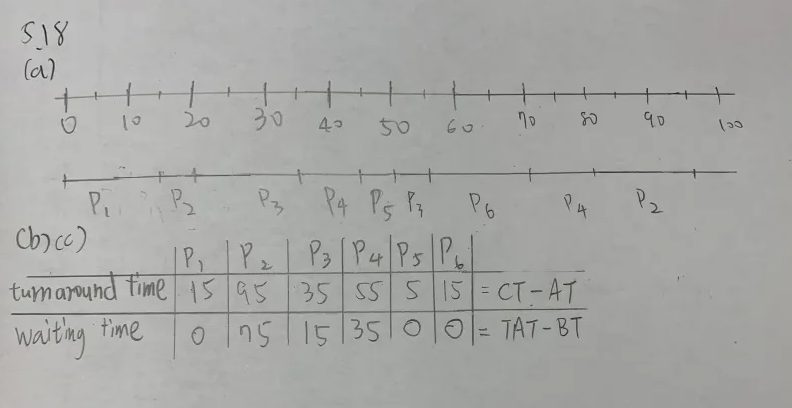 5.18
(a)
0 10 20 30 40 50 60 70 80 90 100
P1 P2 P3 P4 P5 P3 P6 P4 P2
(b)(c)
P1 P2 P3 P4 P5 P6
turnaround time 15 95 35 55 5 15 = CT-AT
waiting time 0 75 15 35 0 0 = TAT-BT